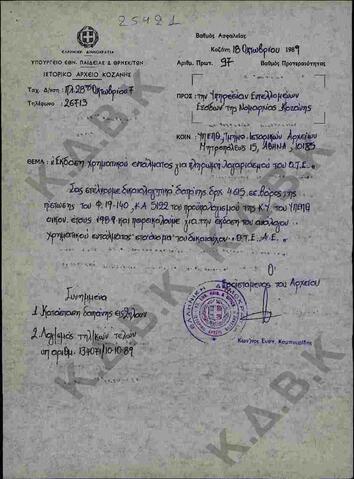 25421
ΕΛΛΗΝΙΚΗ ΔΗΜΟΚΡΑΤΙΑ
ΥΠΟΥΡΓΕΙΟ ΕΘΝ. ΠΑΙΔΕΙΑΣ & ΘΡΗΣΚ/ΤΩΝ
ΙΣΤΟΡΙΚΟ ΑΡΧΕΙΟ ΚΟΖΑΝΗΣ
Ταχ. Δ/νση : Πλ. 28ης Οκτωβρίου 7
Τηλέφωνο : 26713
Βαθμός Ασφαλείας
Κοζάνη 18 Οκτωβρίου 1989
Αριθμ. Πρωτ. 97 Βαθμός Προτεραιότητας
ΠΡΟΣ: την Υπηρεσίαν Εντελλομένων
Εξόδων της Νομαρχίας Κοζάνης
ΚΟΙΝ: ΥΠΕΠΘ, Τμήμα Ιστορικών Αρχείων
Μητροπόλεως 15, ΑΘΗΝΑ, 10185
ΘΕΜΑ: «Έκδοση χρηματικού εντάλματος για πληρωμή λογαριασμού του Ο.Τ.Ε.»
Σας στέλνομε δικαιολογητικά δαπάνης δρχ. 4615 σε βάρος της
πίστωσης του Φ. 19-140, Κ.Α 5122 του προϋπολογισμού της Κ.Υ. του ΥΠΕΠΘ
οικον. έτους 1989 και παρακαλούμε για την έκδοση του ανάλογου
χρηματικού εντάλματος επ' ονόματι του δικαιούχου «Ο.Τ.Ε. Α.Ε.»
Ο
Προϊστάμενος του Αρχείου
Συνημμένα
1. Κατάσταση δαπάνης εις διπλούν
2. Λογ/σμός τηλ/κών τελών
υπ' αριθμ. 134071/10-10-89
Κων/νος Ευαγ. Καμπουρίδης
Κ.Δ.Β.Κ